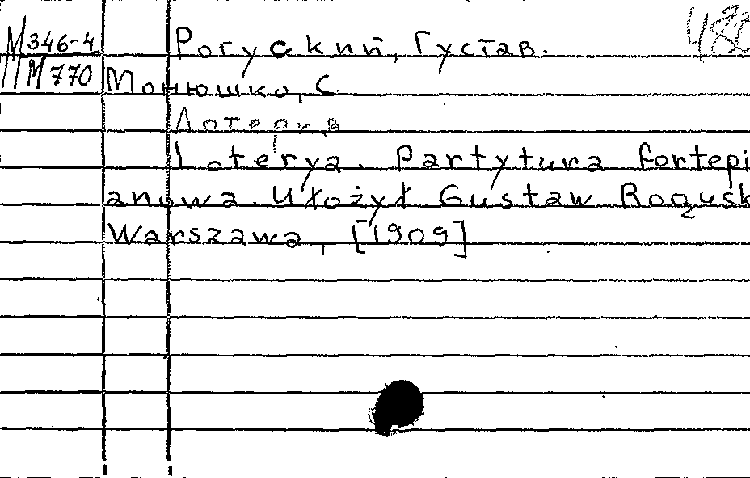 М346-4 Рогуский, Густав. 488
М770 Монюшко, С.
Лотерея
Loterya. Partytura fortepi
anowa. Ułożył Gustaw Rogusk
Warszawa, [1909]